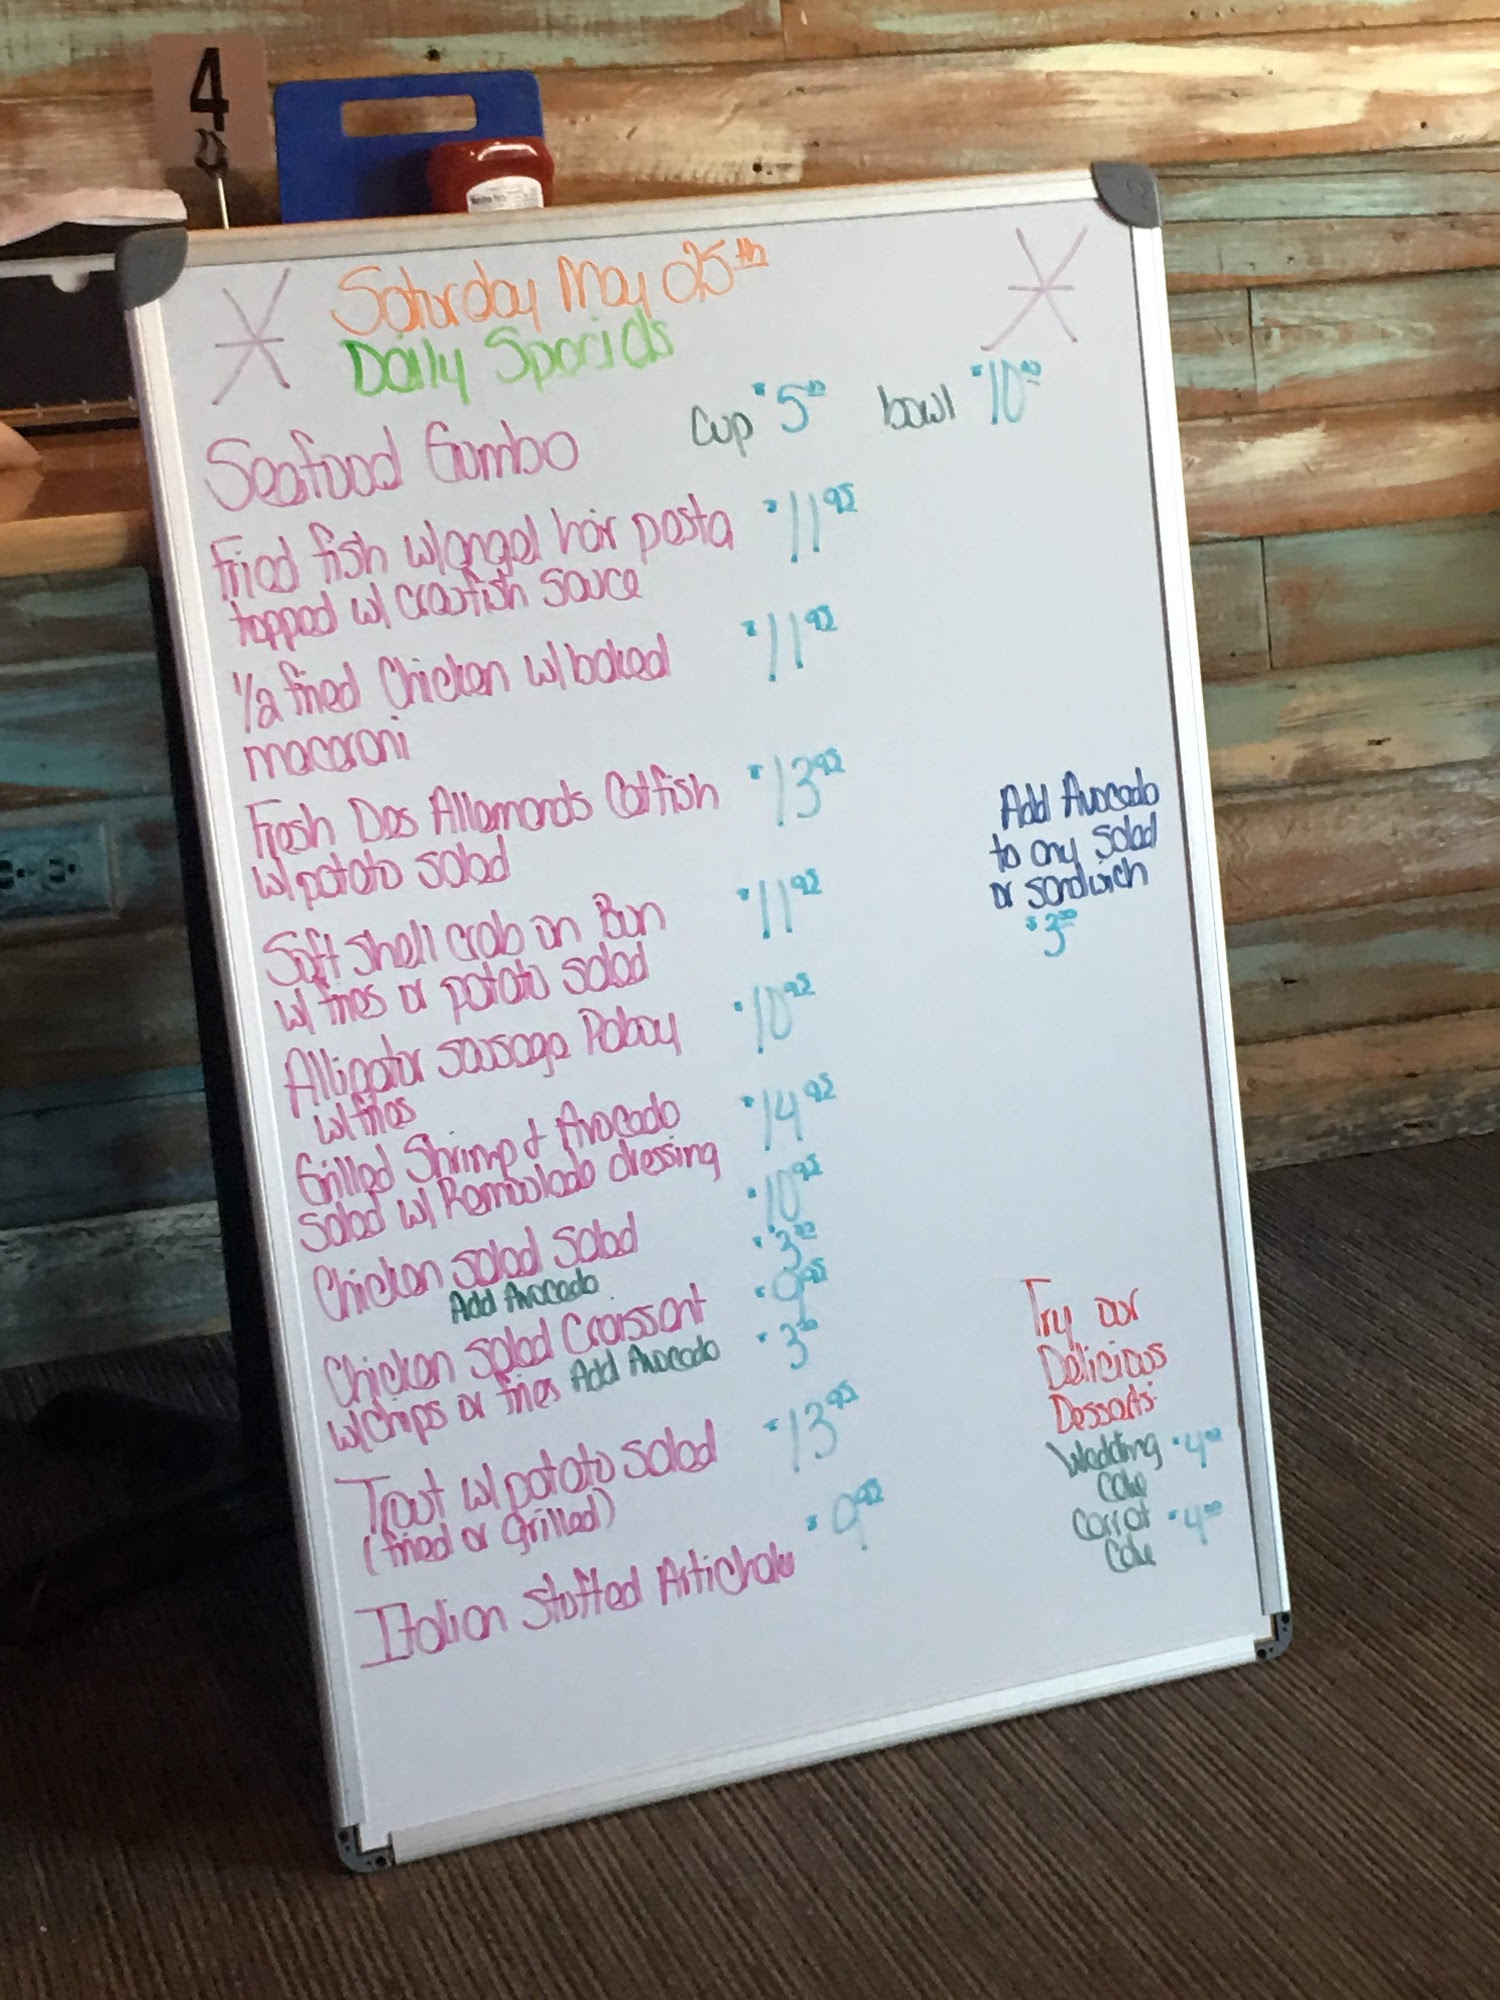 4
23
Saturday May 25th
Daily Specials
Seafood Gumbo cup $5.00 bowl $10.00
Fried fish w/angel hair pasta $11.95
topped w/ crawfish sauce
1/2 fried Chicken w/baked $11.95
macaroni
Fresh Des Allemands Catfish $13.95
w/potato salad
Add Avocado
to any salad
or sandwich
$3.00
Soft shell crab on Bun $11.95
w/ fries or potato salad
Alligator sausage Poboy $10.95
w/fries
Grilled Shrimp & Avocado $14.95
Salad w/ Remoulade dressing
Chicken salad Salad $10.95
Add Avocado $3.00
Chicken salad Croissant $9.95
w/chips or fries Add Avocado $3.00
Trout w/potato salad $13.95
(fried or grilled)
Italian Stuffed Artichoke $9.95
Try our
Delicious
Desserts
Wedding $4.00
Cake
Carrot $4.00
Cake